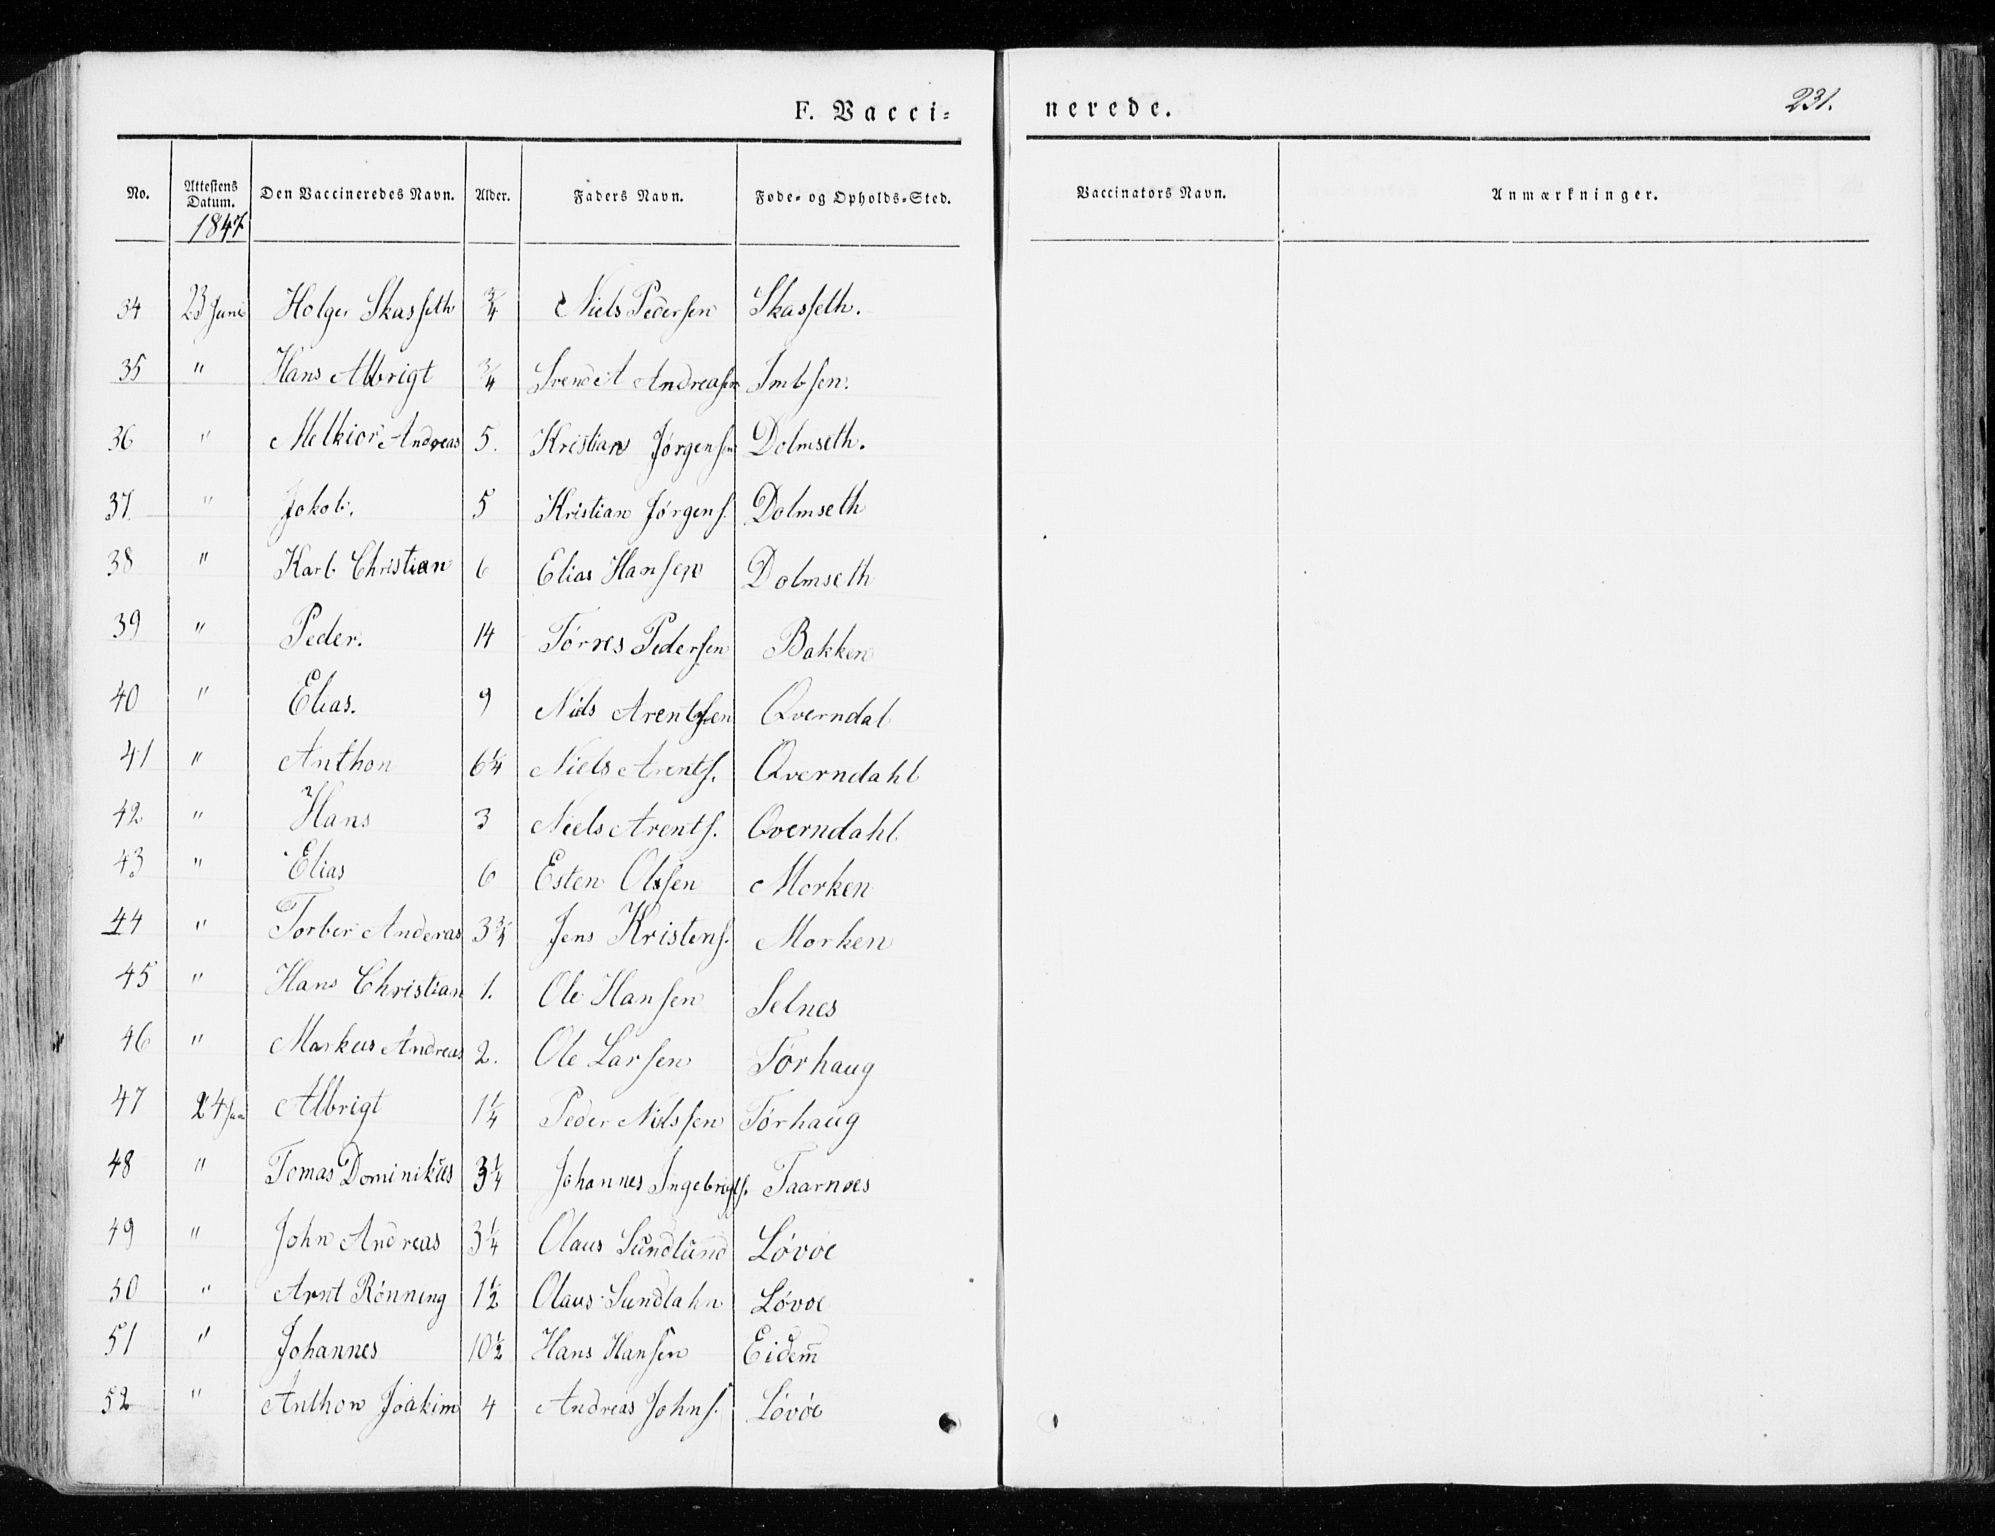 F. Vacci-
nerede.
231.
No. Attestens Datum. Den Vaccineredes Navn. Alder. Faders Navn. Føde- og Opholds-Sted. Vaccinators Navn. Anmærkninger.
1847
34 23 Juni Holger Skasseth 3/4 Niels Pedersen Skasseth.
35 " Hans Albrigt 3/4 Andreasen Imbsen.
36 " Melkior Andreas 5. Kristian Jørgensen Dolmseth.
37 " Jakob. 5 Kristian Jørgens. Dolmseth
38 " Karl Christian 6 Elias Hansen Dolmseth
39 " Peder. 14 Tørres Pedersen Bakken
40 " Elias. 9 Niels Arentsen Qverndal
41 " Anthon 6 1/4 Niels Arents. Qverndahl
42 " Hans 3 Niels Arents. Qverndahl
43 " Elias 6 Esten Olssen Morken
44 " Torber Anderas 3 3/4 Jens Kristens. Morken
45 " Hans Christian 1. Ole Hansen Selnes
46 " Markus Andreas 2. Ole Larsen Tørhaug
47 24 Juni Albrigt 1 1/4 Peder Nielssen Tørhaug
48 " Tomas Dominikus 3 1/4 Johannes Ingebrigts. Taarnæs
49 " John Andreas 3 1/4 Olaus Sundlund Løvøe
50 " Arnt Rønning 1 1/2 Olaus Sundlahn Løvøe
51 " Johannes 10 1/2 Hans Hansen Eidem̄
52 " Anthon Joakim 4 Andreas Johns. Løvøe